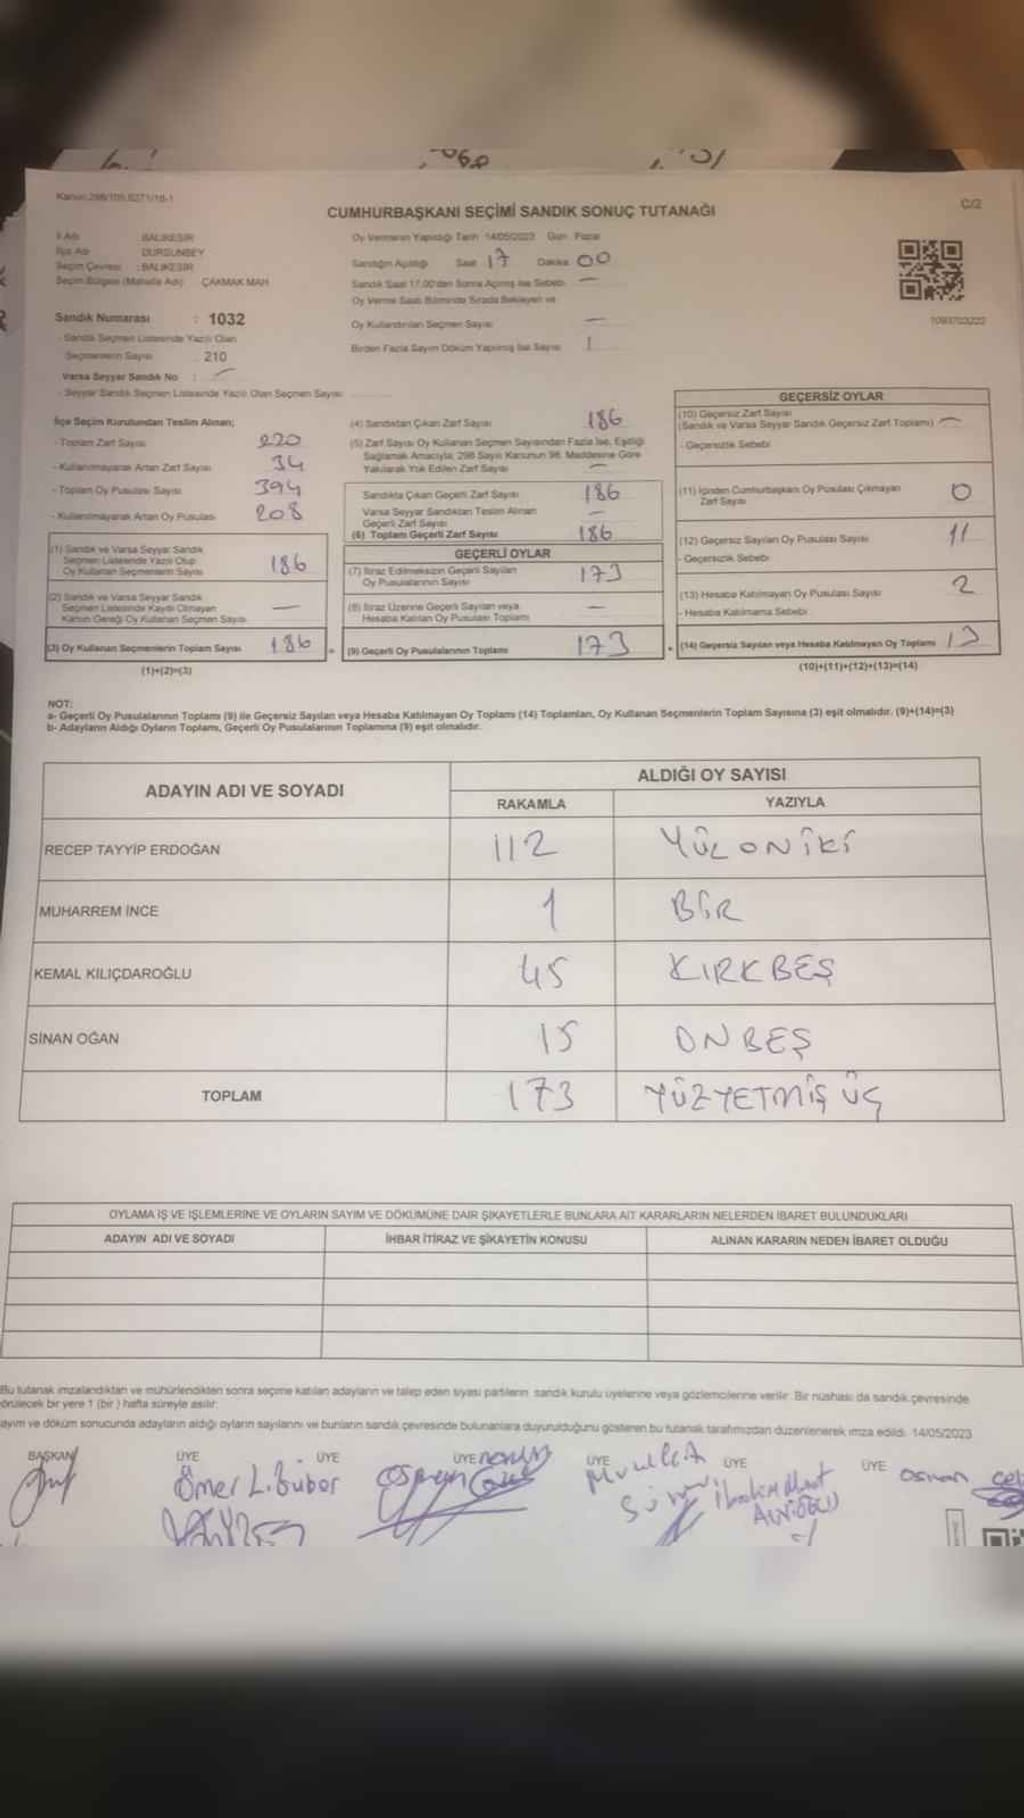 Kanun:298/105,6271/18-1
C/2
CUMHURBAŞKANI SEÇİMİ SANDIK SONUÇ TUTANAĞI
İl Adı BALIKESİR
İlçe Adı DURSUNBEY
Seçim Çevresi : BALIKESİR
Seçim Bölgesi (Mahalle Adı) ÇAKMAK MAH
Sandık Numarası : 1032
- Sandık Seçmen Listesinde Yazılı Olan
Seçmenlerin Sayısı 210
Varsa Seyyar Sandık No : —
- Seyyar Sandık Seçmen Listesinde Yazılı Olan Seçmen Sayısı
Oy Vermenin Yapıldığı Tarih 14/05/2023 Gün Pazar
Sandığın Açıldığı Saat 17 Dakika 00
Sandık Saat 17.00'den Sonra Açılmış İse Sebebi —
Oy Verme Saati Bitiminde Sırada Bekleyen ve
Oy Kullandırılan Seçmen Sayısı —
Birden Fazla Sayım Döküm Yapılmış İse Sayısı 1
1093703222
İlçe Seçim Kurulundan Teslim Alınan;
- Toplam Zarf Sayısı 220
- Kullanılmayarak Artan Zarf Sayısı 34
- Toplam Oy Pusulası Sayısı 394
- Kullanılmayarak Artan Oy Pusulası 208
(1) Sandık ve Varsa Seyyar Sandık
Seçmen Listesinde Yazılı Olup
Oy Kullanan Seçmenlerin Sayısı 186
(2) Sandık ve Varsa Seyyar Sandık
Seçmen Listesinde Kaydı Olmayan
Kanun Gereği Oy Kullanan Seçmen Sayısı —
(3) Oy Kullanan Seçmenlerin Toplam Sayısı 186
(1)+(2)=(3)
(4) Sandıktan Çıkan Zarf Sayısı 186
(5) Zarf Sayısı Oy Kullanan Seçmen Sayısından Fazla İse, Eşitliği
Sağlamak Amacıyla, 298 Sayılı Kanunun 98. Maddesine Göre
Yakılarak Yok Edilen Zarf Sayısı —
Sandıkta Çıkan Geçerli Zarf Sayısı 186
Varsa Seyyar Sandıktan Teslim Alınan
Geçerli Zarf Sayısı —
(6) Toplam Geçerli Zarf Sayısı 186
GEÇERLİ OYLAR
(7) İtiraz Edilmeksizin Geçerli Sayılan
Oy Pusulalarının Sayısı 173
(8) İtiraz Üzerine Geçerli Sayılan veya
Hesaba Katılan Oy Pusulası Toplamı —
(9) Geçerli Oy Pusulalarının Toplamı 173
GEÇERSİZ OYLAR
(10) Geçersiz Zarf Sayısı
(Sandık ve Varsa Seyyar Sandık Geçersiz Zarf Toplamı) —
- Geçersizlik Sebebi
(11) İçinden Cumhurbaşkanı Oy Pusulası Çıkmayan
Zarf Sayısı 0
(12) Geçersiz Sayılan Oy Pusulası Sayısı 11
- Geçersizlik Sebebi
(13) Hesaba Katılmayan Oy Pusulası Sayısı 2
- Hesaba Katılmama Sebebi
(14) Geçersiz Sayılan veya Hesaba Katılmayan Oy Toplamı 13
(10)+(11)+(12)+(13)=(14)
NOT:
a- Geçerli Oy Pusulalarının Toplamı (9) ile Geçersiz Sayılan veya Hesaba Katılmayan Oy Toplamı (14) Toplamları, Oy Kullanan Seçmenlerin Toplam Sayısına (3) eşit olmalıdır. (9)+(14)=(3)
b- Adayların Aldığı Oyların Toplamı, Geçerli Oy Pusulalarının Toplamına (9) eşit olmalıdır.
ADAYIN ADI VE SOYADI ALDIĞI OY SAYISI
RAKAMLA YAZIYLA
RECEP TAYYİP ERDOĞAN 112 YÜZONİKİ
MUHARREM İNCE 1 BİR
KEMAL KILIÇDAROĞLU 45 KIRKBEŞ
SİNAN OĞAN 15 ONBEŞ
TOPLAM 173 YÜZYETMİŞ ÜÇ
OYLAMA İŞ VE İŞLEMLERİNE VE OYLARIN SAYIM VE DÖKÜMÜNE DAİR ŞİKAYETLERLE BUNLARA AİT KARARLARIN NELERDEN İBARET BULUNDUKLARI
ADAYIN ADI VE SOYADI İHBAR İTİRAZ VE ŞİKAYETİN KONUSU ALINAN KARARIN NEDEN İBARET OLDUĞU
Bu tutanak imzalandıktan ve mühürlendikten sonra seçime katılan adayların ve talep eden siyasi partilerin sandık kurulu üyelerine veya gözlemcilerine verilir. Bir nüshası da sandık çevresinde
görülecek bir yere 1 (bir) hafta süreyle asılır.
ayım ve döküm sonucunda adayların aldığı oyların sayılarını ve bunların sandık çevresinde bulunanlara duyurulduğunu gösteren bu tutanak tarafımızdan düzenlenerek imza edildi. 14/05/2023
BAŞKAN ÜYE ÜYE ÜYE ÜYE ÜYE ÜYE
Ömer L.
Osman